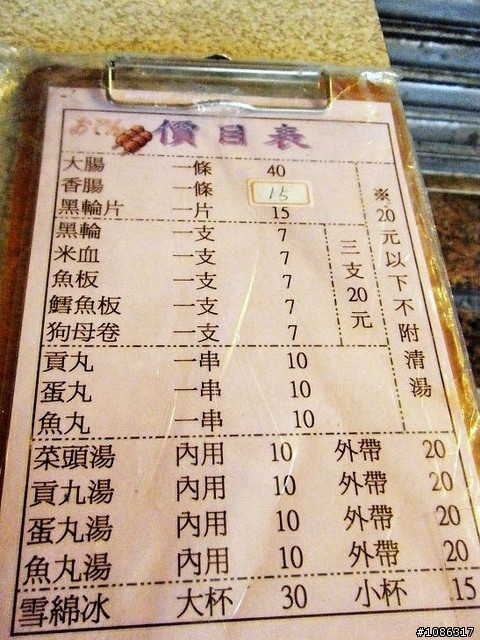 おでん 價目表
大腸 一條 40
香腸 一條 15
黑輪片 一片 15
黑輪 一支 7
米血 一支 7
魚板 一支 7
鱈魚板 一支 7
狗母卷 一支 7
三支20元
※20元以下不附清湯
貢丸 一串 10
蛋丸 一串 10
魚丸 一串 10
菜頭湯 內用 10 外帶 20
貢丸湯 內用 10 外帶 20
蛋丸湯 內用 10 外帶 20
魚丸湯 內用 10 外帶 20
雪綿冰 大杯 30 小杯 15
#1086317